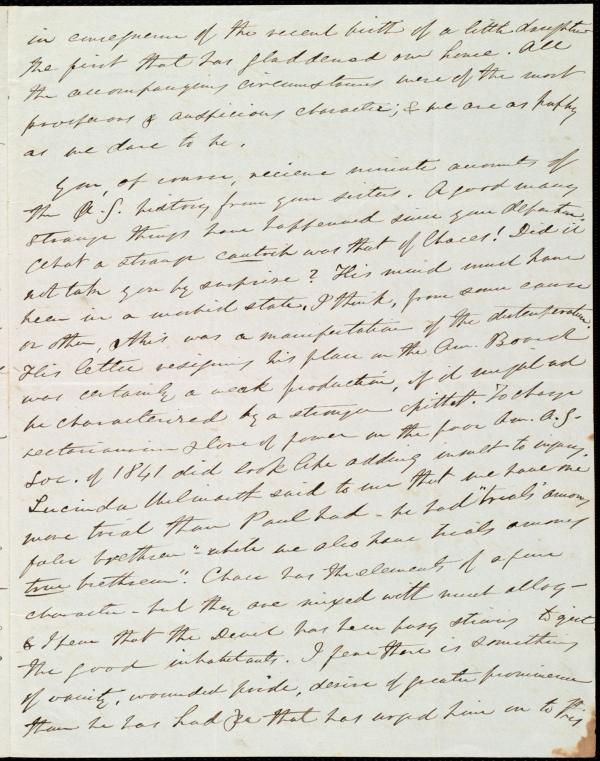 in consequence of the recent birth of a little daughter
the first that has gladdened our house. All
the accompanying circumstances were of the most
prosperous & auspicious character; & we are as happy
as we dare to be.
You, of course, receive minute accounts of
the A.S. history from your sisters. A good many
strange things have happened since your departure.
What a strange was that of Chace's! Did it
not take you by surprise? His mind must have
been in a morbid state. I think, from some cause
or other, this was a manifestation of the distemperature.
His letter resigning his place in the Am. Board
was certainly a weak production, if it might not
be characterized by a stronger epithet. To charge
sectarianism & love of power on the poor Am. A.S.
Soc. of 1841 did look like adding insult to injury.
Lucinda Wilmarth said to me that we have one
more trial than Paul had - he had "trials among
false brethren" - while we also have trials among
true brethren". Chace has the elements of a fine
character - but they are mixed with much alloy -
& I fear that the Devil has been busy striving to eject
the good inhabitants. I fear there is something
of vanity, wounded pride, desire of greater prominence
than he has had that has urged him on to this